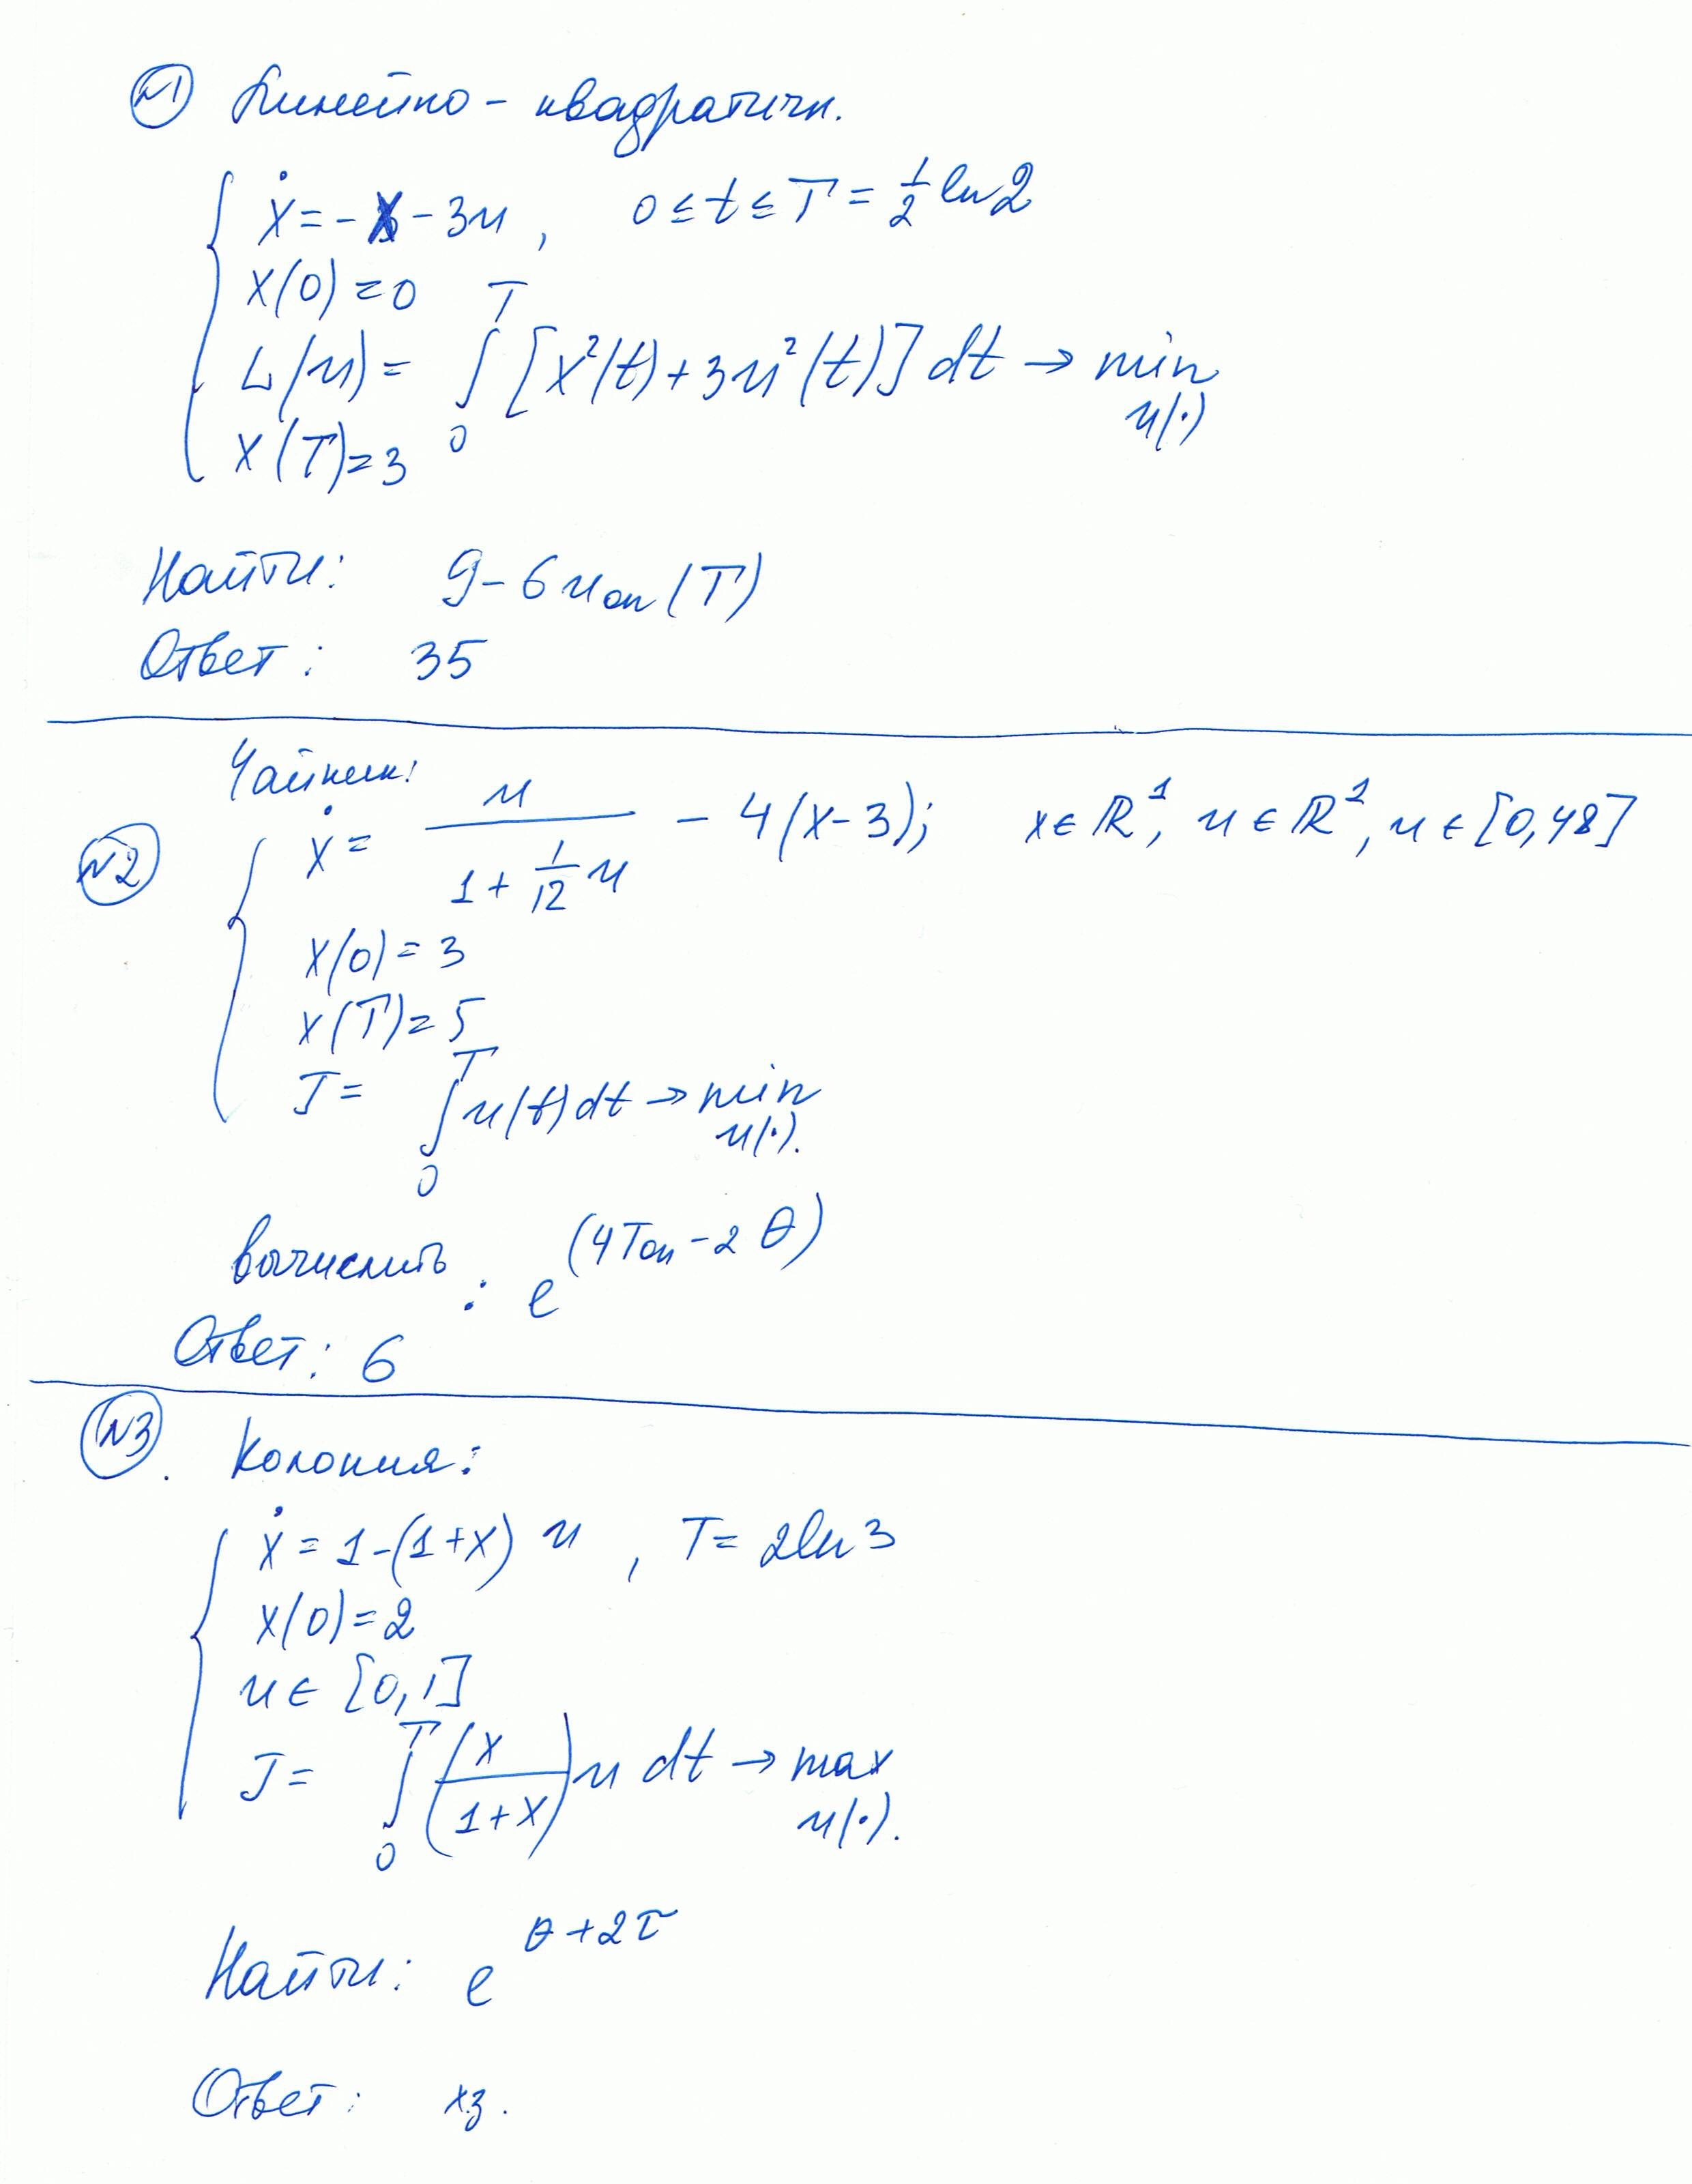 №1 Линейно-квадратичн.
ẋ = -x - 3u, 0 ≤ t ≤ T = 1/2 ln2
x(0) = 0
L(u) = ∫₀ᵀ [x²(t) + 3u²(t)] dt → min u(·)
x(T) = 3
Найти: 9 - 6uоп(T)
Ответ: 35
Чайник:
№2 ẋ = u/(1 + 1/12 u) - 4(x-3); x ∈ ℝ¹, u ∈ ℝ¹, u ∈ [0,48]
x(0) = 3
x(T) = 5
J = ∫₀ᵀ u(t)dt → min u(·).
вычислить: e^(4Tоп - 2θ)
Ответ: 6
№3. Колония:
ẋ = 1 - (1+x) u, T = 2ln3
x(0) = 2
u ∈ [0,1]
J = ∫₀ᵀ (x/(1+x)) u dt → max u(·).
Найти: e^(θ+2τ)
Ответ: хз.